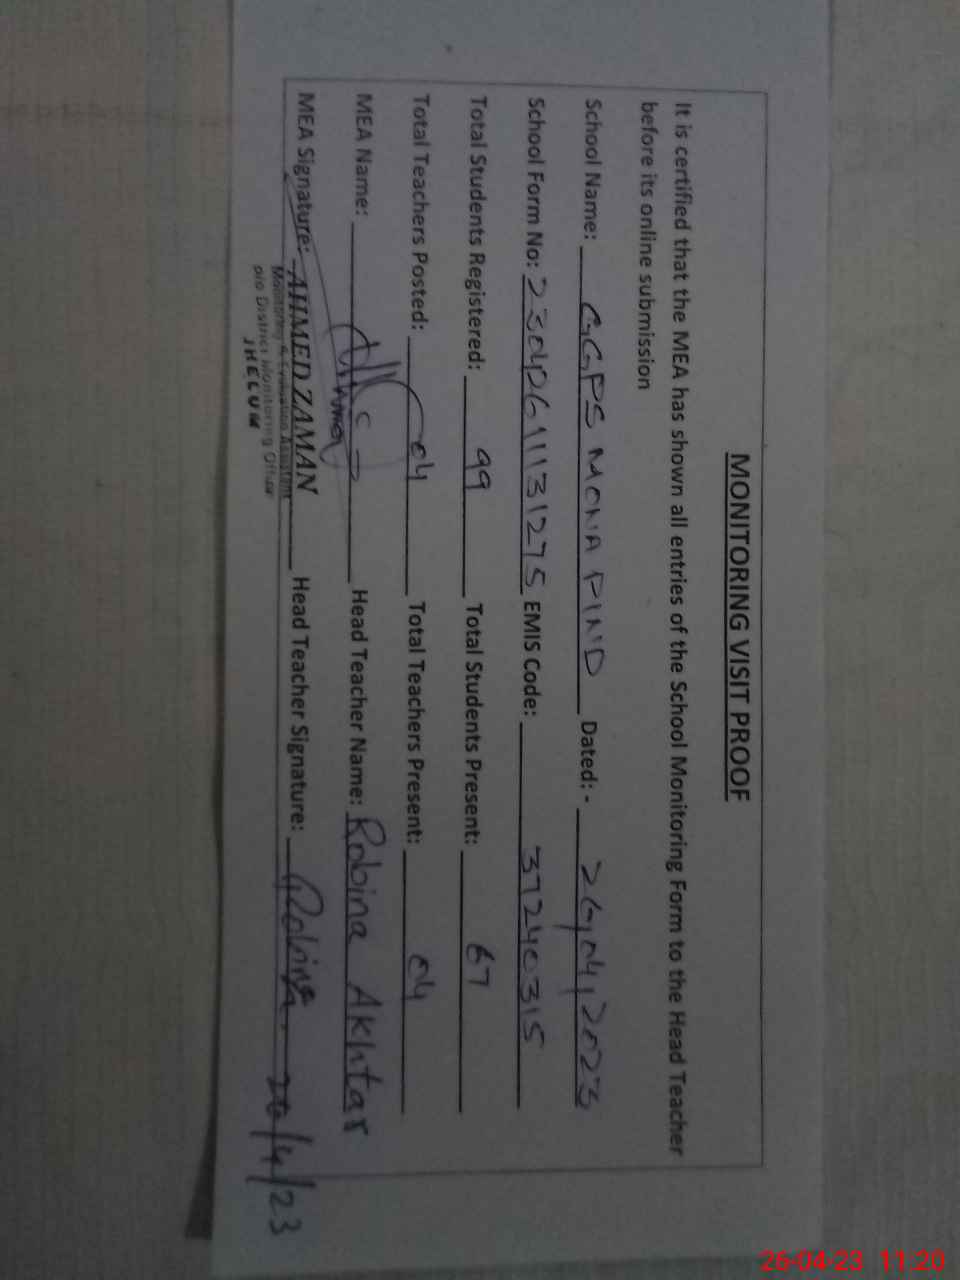 MONITORING VISIT PROOF
It is certified that the MEA has shown all entries of the School Monitoring Form to the Head Teacher
before its online submission
School Name: GGPS MONA PIND Dated: - 26,04,2023
School Form No: 23040611131275 EMIS Code: 37240315
Total Students Registered: 99 Total Students Present: 67
Total Teachers Posted: 04 Total Teachers Present: 04
MEA Name: Head Teacher Name: Robina Akhtar
MEA Signature: AHMED ZAMAN Head Teacher Signature: Robina 26/4/23
Monitoring & Evaluation Assistant
O/o District Monitoring Officer
JHELUM
26-04-23 11:20